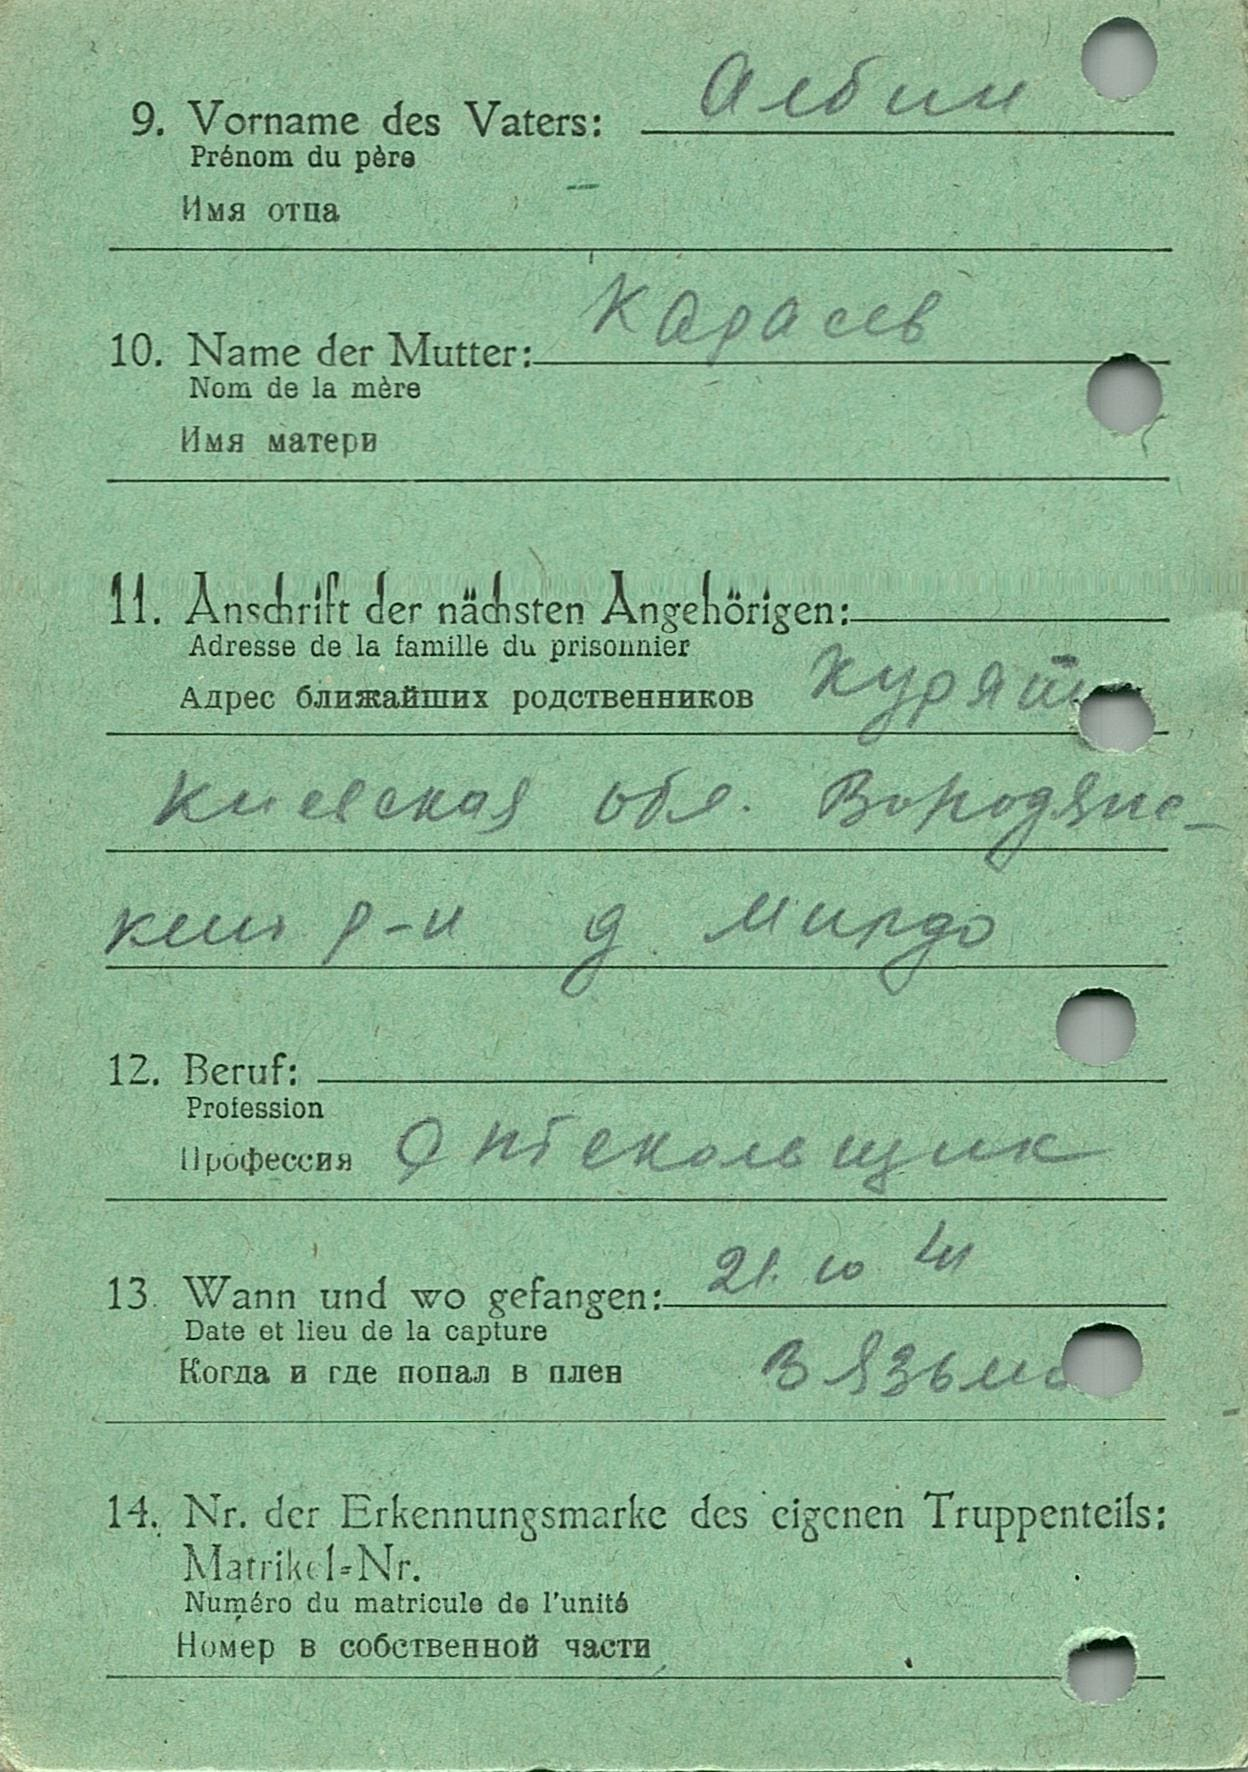 9. Vorname des Vaters: Албин
Prénom du père
Имя отца
10. Name der Mutter: Карасев
Nom de la mère
Имя матери
11. Anschrift der nächsten Angehörigen:
Adresse de la famille du prisonnier
Адрес ближайших родственников
Киевская обл. Бородянс-
кий р-н д. Мирдо
12. Beruf:
Profession
Профессия
13. Wann und wo gefangen: 21. 10 41
Date et lieu de la capture
Когда и где попал в плен
14. Nr. der Erkennungsmarke des eigenen Truppenteils:
Matrikel-Nr.
Numéro du matricule de l'unité
Номер в собственной части